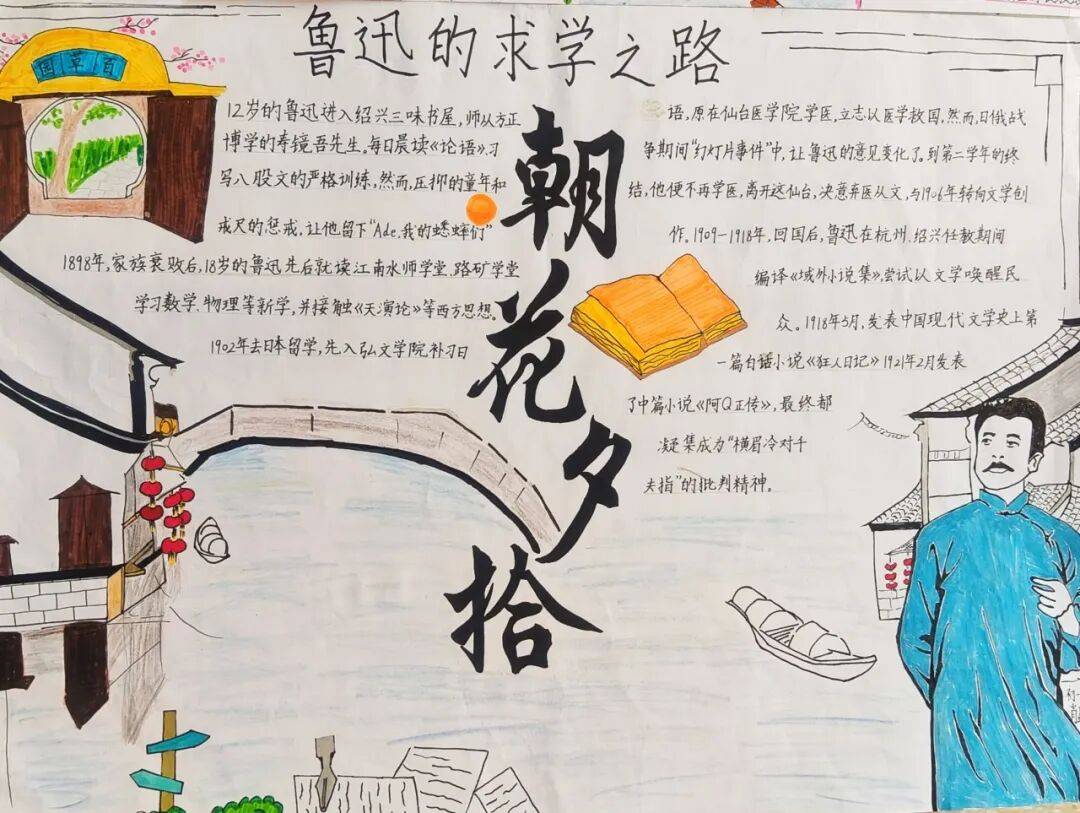 鲁迅的求学之路
园草百
12岁的鲁迅进入绍兴三味书屋,师从方正
博学的寿镜吾先生。每日晨读《论语》习
写八股文的严格训练,然而,压抑的童年和
戒尺的惩戒,让他留下“Ade,我的蟋蟀们”
1898年,家族衰败后,18岁的鲁迅先后就读江南水师学堂.路矿学堂
学习数学.物理等新学,并接触《天演论》等西方思想。
1902年去日本留学,先入弘文学院补习日
朝花夕拾
语,原在仙台医学院学医,立志以医学救国,然而,日俄战
争期间“幻灯片事件”中,让鲁迅的意见变化了。到第二学年的终
结,他便不再学医,离开这仙台,决意弃医从文,与1906年转向文学创
作。1909-1918年,回国后,鲁迅在杭州.绍兴任教期间
编译《域外小说集》,尝试以文学唤醒民
众。1918年5月,发表中国现代文学史上第
一篇白话小说《狂人日记》1921年2月发表
了中篇小说《阿Q正传》,最终都
凝集成为“横眉冷对千
夫指”的批判精神。